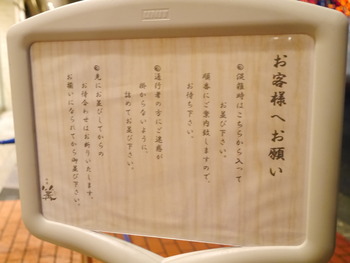 お客様へお願い
混雑時はこちらから入って
お並び下さい。
順番にご案内致しますので、
お待ち下さい。
通行者の方にご迷惑が
掛からないように、
詰めてお並び下さい。
先にお並びしてからの
お待合わせはお断りいたします。
お揃いになられてから御並び下さい。
笑